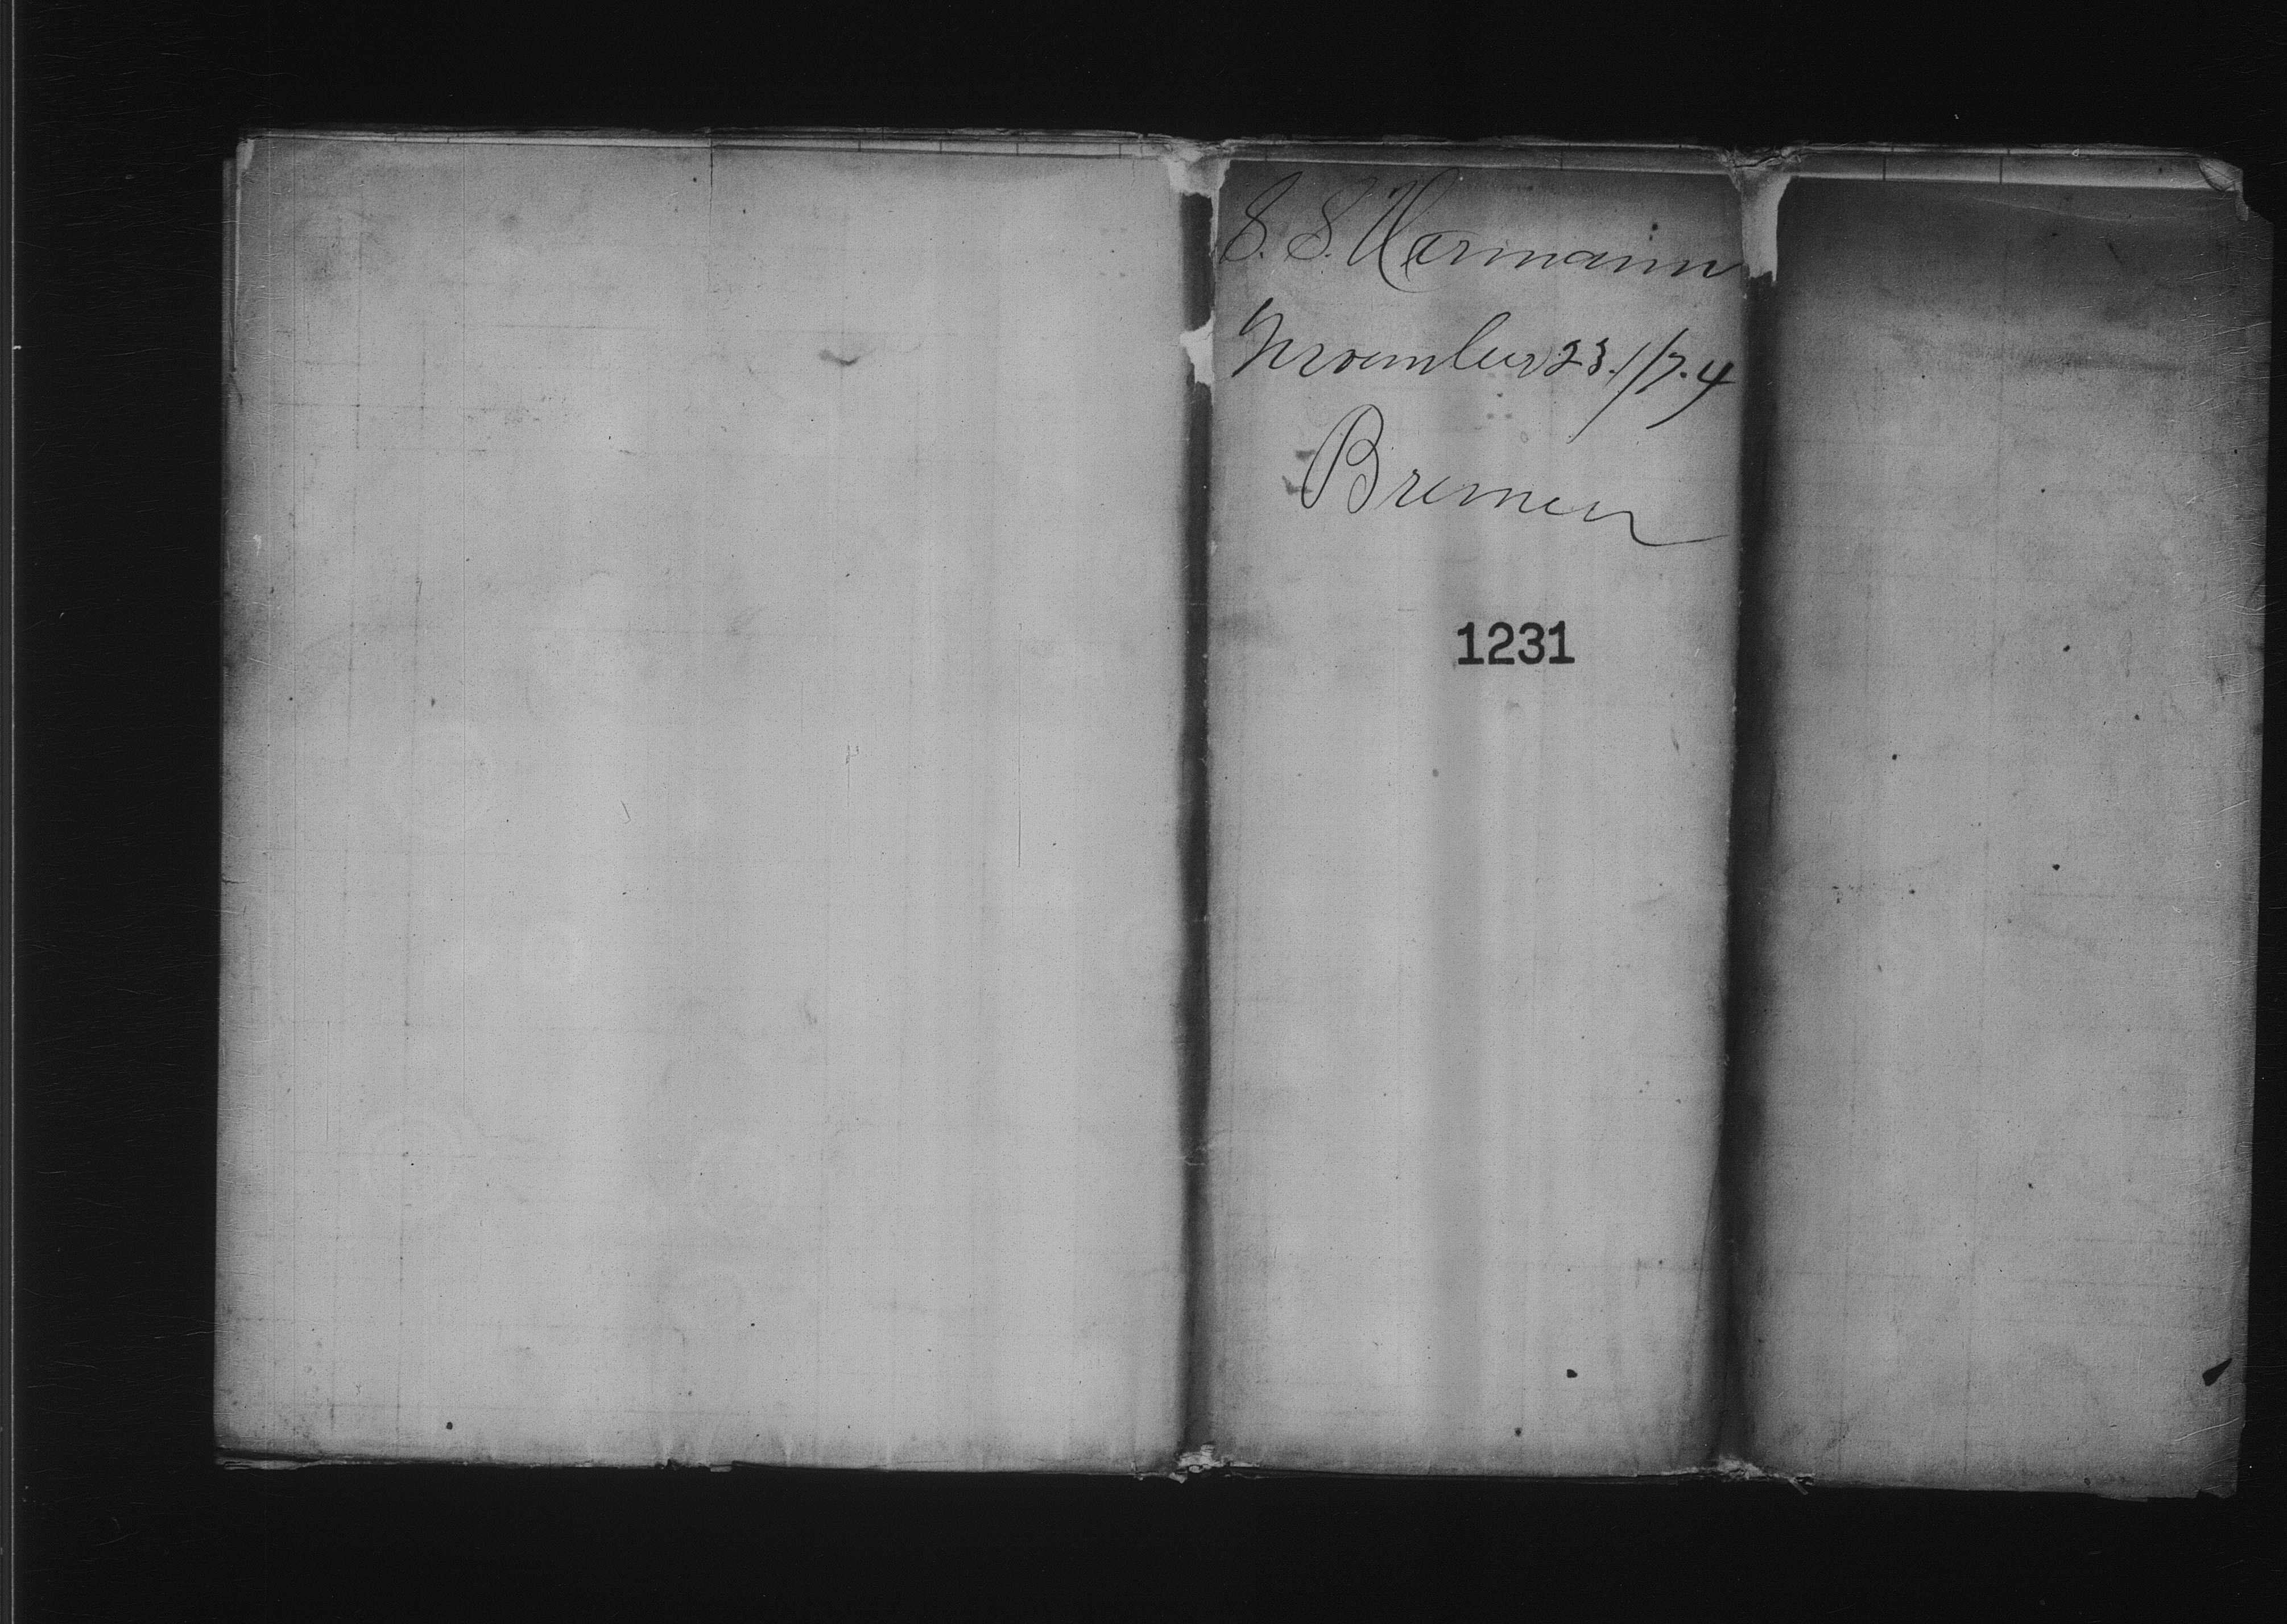 S. S. Hermann
November 23./74
Bremen
1231